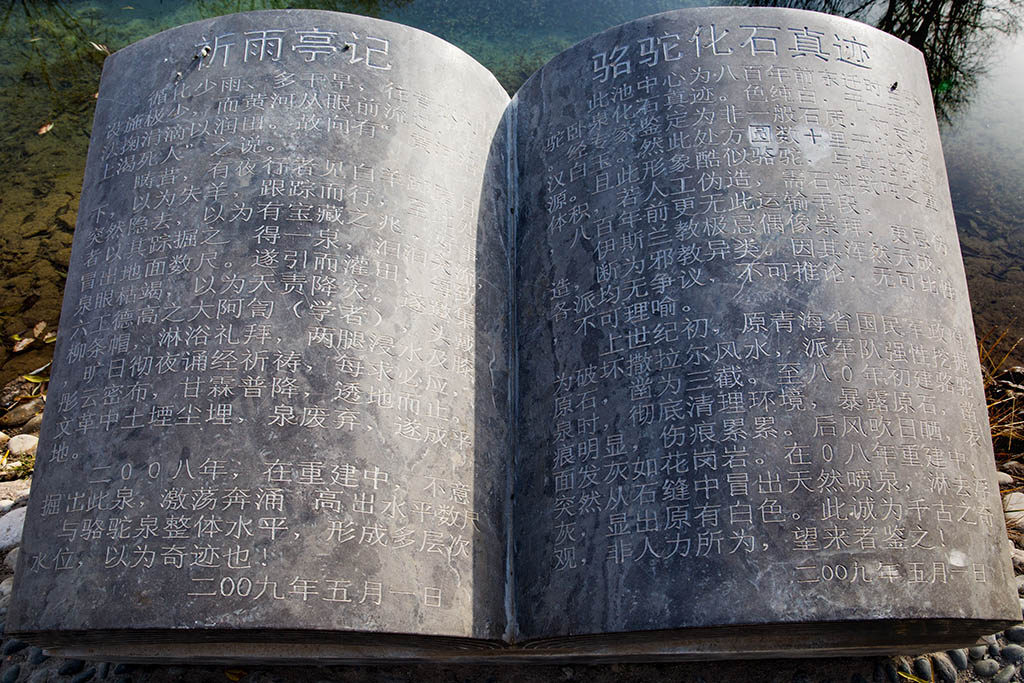 祈雨亭记
循化少雨、多干旱,
而黄河从眼前流
滴以润田。故向有
渴死人”之说。
有夜行者见白羊
以为失羊,跟踪而行,至
突然隐去,以为有宝藏之兆
者以其踪掘之,得一泉,汩汩
冒出地面数尺,遂引而灌田。
泉眼枯竭,以为天责降灾。遂
六工德高之大阿訇(学者)
柳条帽、淋浴礼拜,两腿浸水
旷日彻夜诵经祈祷,每求必应,及
彤云密布,甘霖普降,透地而止。
文革中土堙尘埋,泉废弃,遂成平
地。
二00八年,在重建中,不意
掘出此泉,激荡奔涌,高出水平数尺
与骆驼泉整体水平,形成多层次
水位,以为奇迹也!
二00九年五月一日
骆驼化石真迹
此池中心为八百年前
驼卧化石真迹。色纯白
经来家鉴为非一般石质,
汉白玉。然定此处方圆数十里
源。且形象酷似骆驼,与
体积若人工伪造,需石料
八百年前更无此运输
造,伊斯兰教极忌偶像崇拜
各派断无邪教异类。因其浑然天成
不均为争议,不可推论,无可比
可理喻。
上世纪初,原青海省国民
为破坏撒拉尔风水,派军队强性挖
原石,凿为三截。至八0年初建
泉时,彻底清理环境,暴露原石,
痕明显,伤痕累累。后风吹日晒,表
面发灰如花岗岩。在0八年重建中,
突然从石缝中冒出天然喷泉,淋去污
灰,显出原有白色。此诚为千古之奇
观,非人力所为,望来者鉴之!
二00九年五月一日